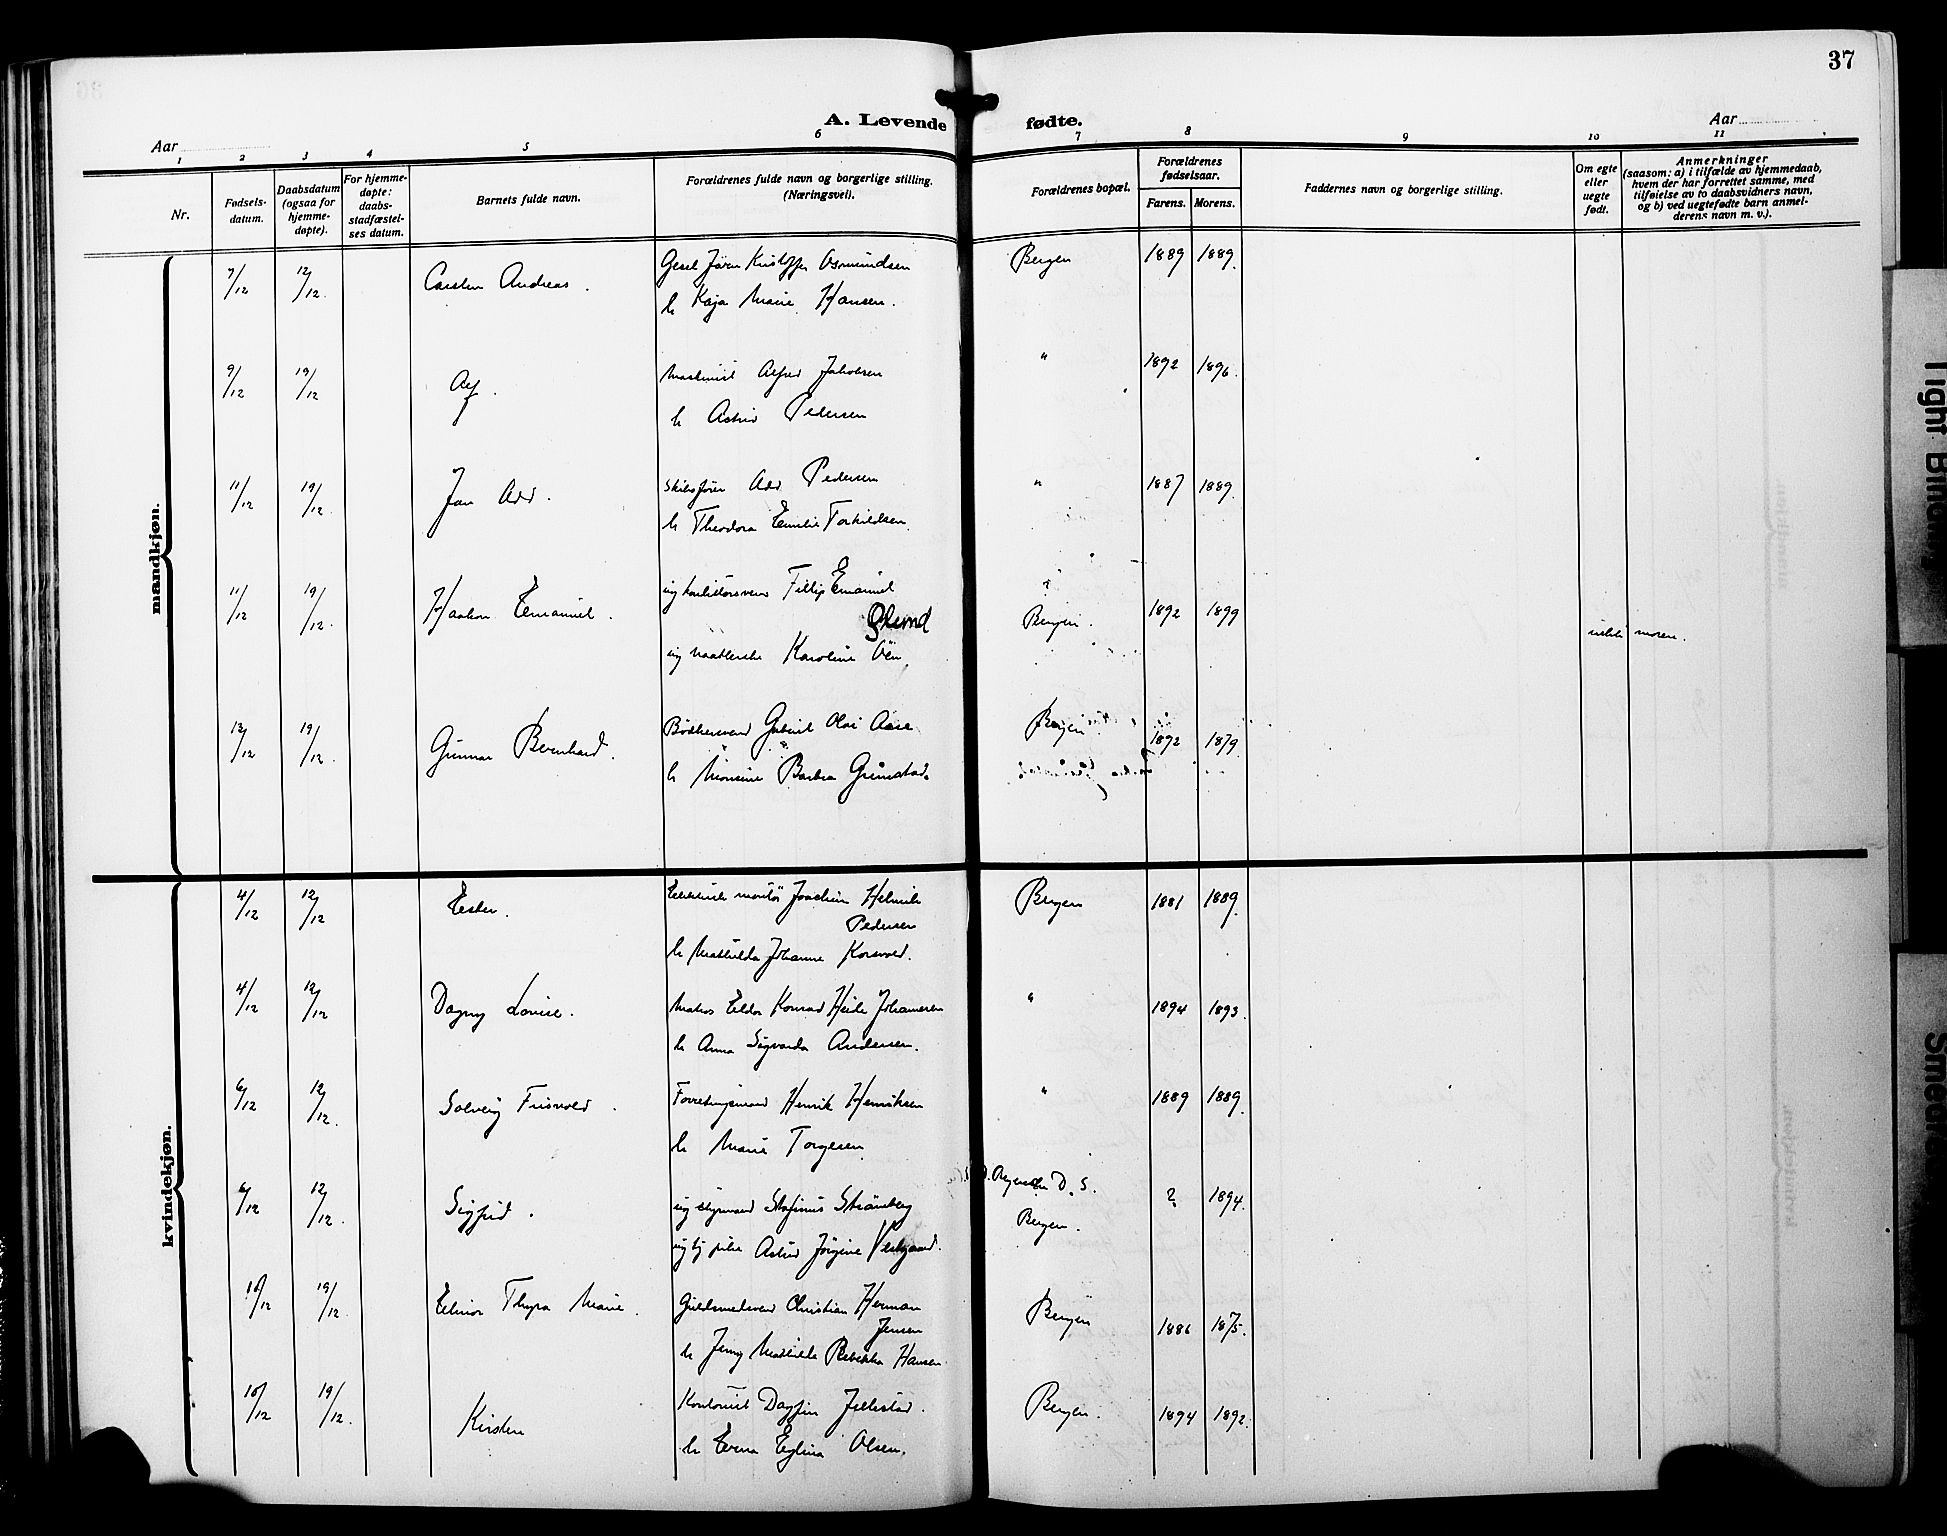 37
A. Levende fødte.
Aar
Aar
1 2 3 4 5 6 7 8 9 10 11
Nr.
Fødsels-
datum.
Daabsdatum
(ogsaa for
hjemme-
døpte).
For hjemme-
døpte:
daabs-
stadfæstel-
ses datum.
Barnets fulde navn.
Forældrenes fulde navn og borgerlige stilling.
(Næringsvei).
Forældrenes bopæl.
Forældrenes
fødselsaar.
Farens. Morens.
Faddernes navn og borgerlige stilling.
Om egte
eller
uegte
født.
Anmerkninger
(saasom: a) i tilfælde av hjemmedaab,
hvem der har forrettet samme, med
tilføielse av to daabsvidners navn,
og b) ved uegtefødte barn anmel-
derens navn m. v.).
mandkjøn.
7/12 12/12. Carsten Andreas. Gesel Jørn Kristoffer Osmundsen Bergen 1889 1889.
h Kaja Marie Hansen.
9/12 19/12 Alf. Maskinist Alfred Jakobsen " 1892 1896.
h Astrid Pedersen
11/12 19/12. Jan Odd. Skibsfører Odd Pedersen " 1887 1889.
h Theodora Emilie Torkildsen.
11/12 19/12. Haakon Emanuel. ug konditorsvend Fillip Emanuel
Ølund Bergen. 1892 1899 moren.
ug Karoline Øen.
13/12 19/12. Gunnar Bernhard. Bødkersvend Gabriel Olai Aase Bergen. 1892 1879.
h Monsine Barbra Grimstad.
kvindekjøn.
4/12 12/12 Ester. Elektrisk montør Joachim Helmik
Pedersen Bergen 1881 1889.
h Mathilda Johanne Korsvold.
4/12 12/12 Dagny Lovise. Matros Eldor Konrad Heide Johannesen " 1894 1893.
h Anna Sigvarda Andersen.
6/12 12/12. Solveig Frisvold. Forretningsmand Henrik Henriksen " 1889 1889.
h Marie Torgesen
6/12 12/12. Sigfrid. ug styrmand Stefinus Strömberg D. S. ? 1894.
ug tj pike Astrid Jørgine Vestgaard. Bergen.
10/12 19/12. Elinor Thyra Marie. Guldsmedsvend Christian Herman
Jensen Bergen 1886 1875.
h Jenny Mathilde Rebekka Hansen
10/12 19/12. Kirsten Kontorist Dagfin Jellestad. Bergen. 1894 1892.
h Erna Eglina Olsen.